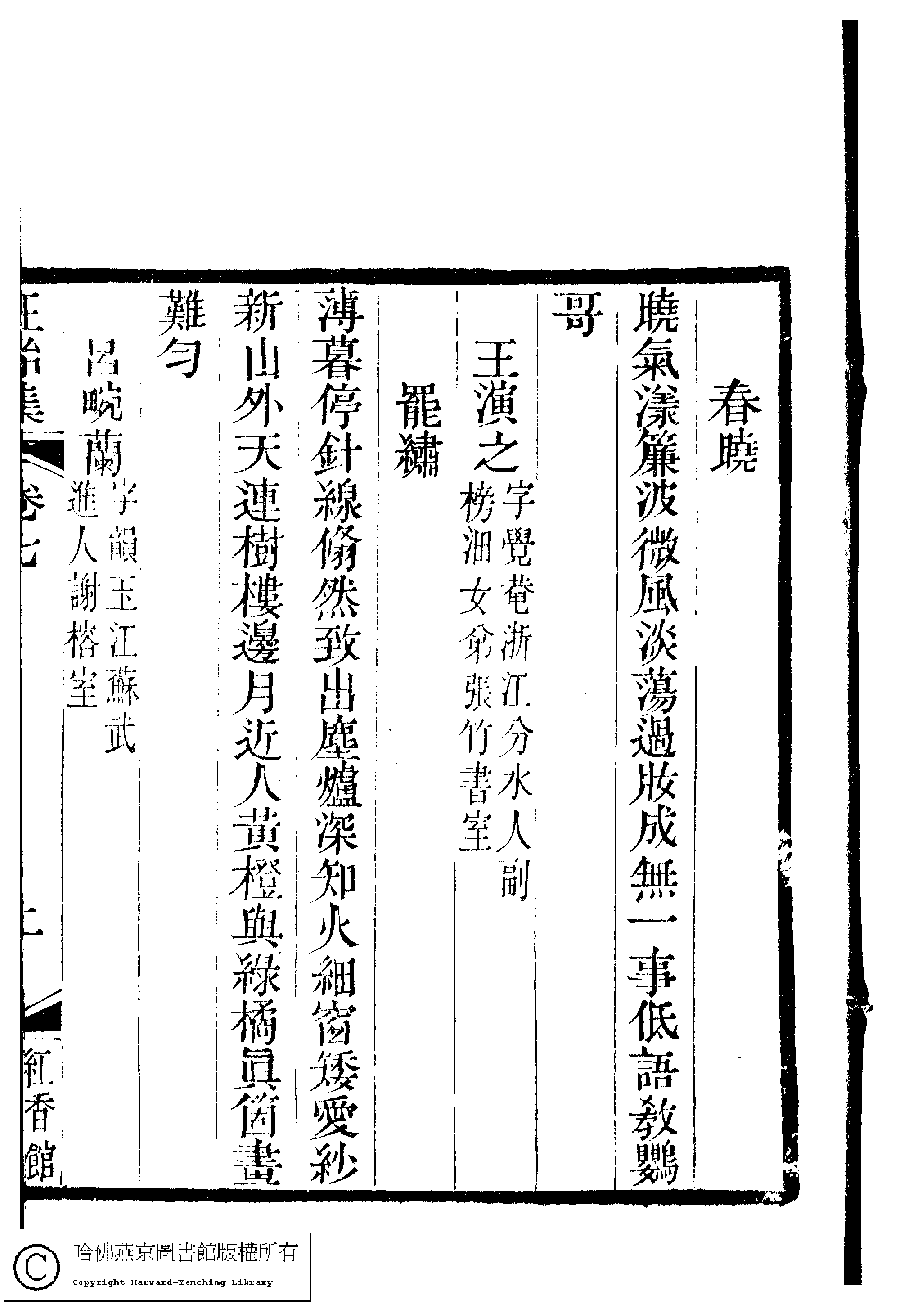 春曉
曉氣漾簾波微風淡蕩過妝成無一事低語敎鸚
哥
王演之 字覺菴浙江分水人副
榜沺女弟張竹書室
罷繡
薄暮停針線翛然致出塵爐深知火細窗矮愛紗
新山外天連樹樓邊月近人黃橙與綠橘眞箇畫
難勻
呂畹蘭 字韻玉江蘇武
進人謝榕室
正始集
卷七
紅香館
哈佛燕京圖書館版權所有
Copyright Harvard-Yenching Library